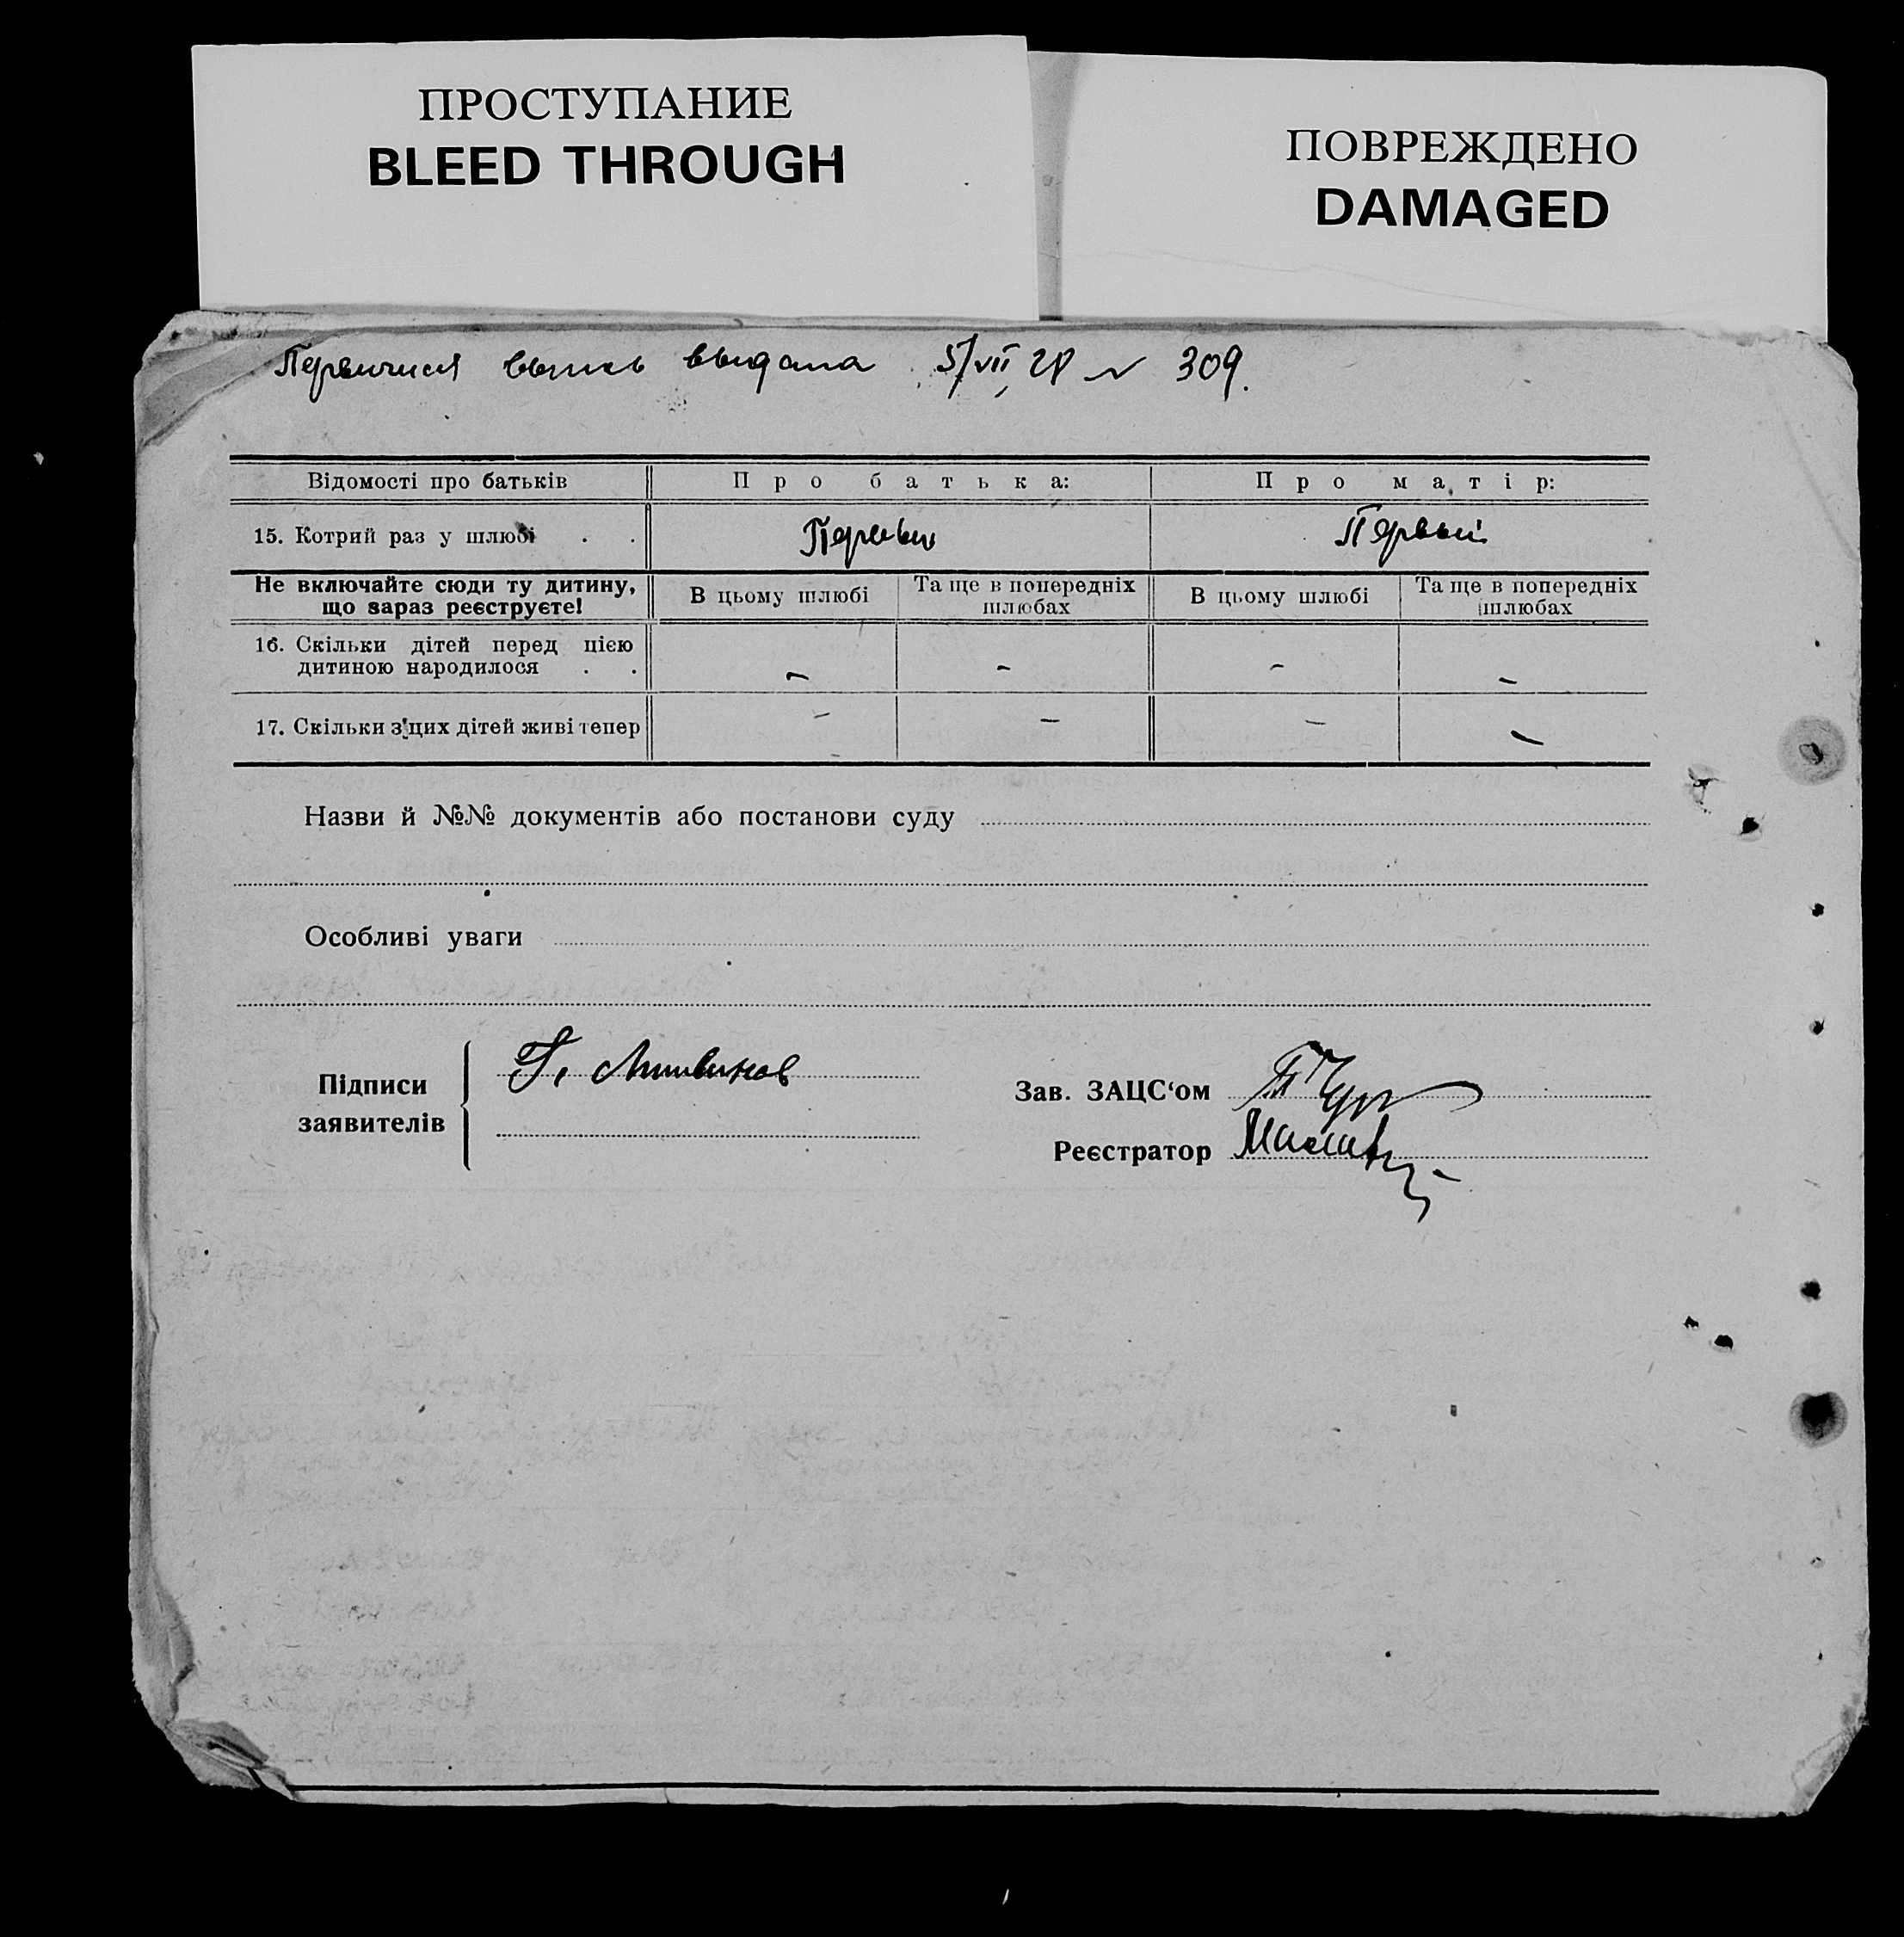 ПРОСТУПАНИЕ
BLEED THROUGH
ПОВРЕЖДЕНО
DAMAGED
Первичная выпись выдана 5/VII 28 № 309.
Відомості про батьків Про батька: Про матір:
15. Котрий раз у шлюбі . . Первый Первый
Не включайте сюди ту дитину, що зараз реєструєте! В цьому шлюбі Та ще в попередніх шлюбах В цьому шлюбі Та ще в попередніх шлюбах
16. Скільки дітей перед цією
дитиною народилося . . – – – –
17. Скільки з цих дітей живі тепер – – – –
Назви й №№ документів або постанови суду
Особливі уваги
Підписи
заявителів
Г. Литвинов
Зав. ЗАЦС‘ом
Реєстратор